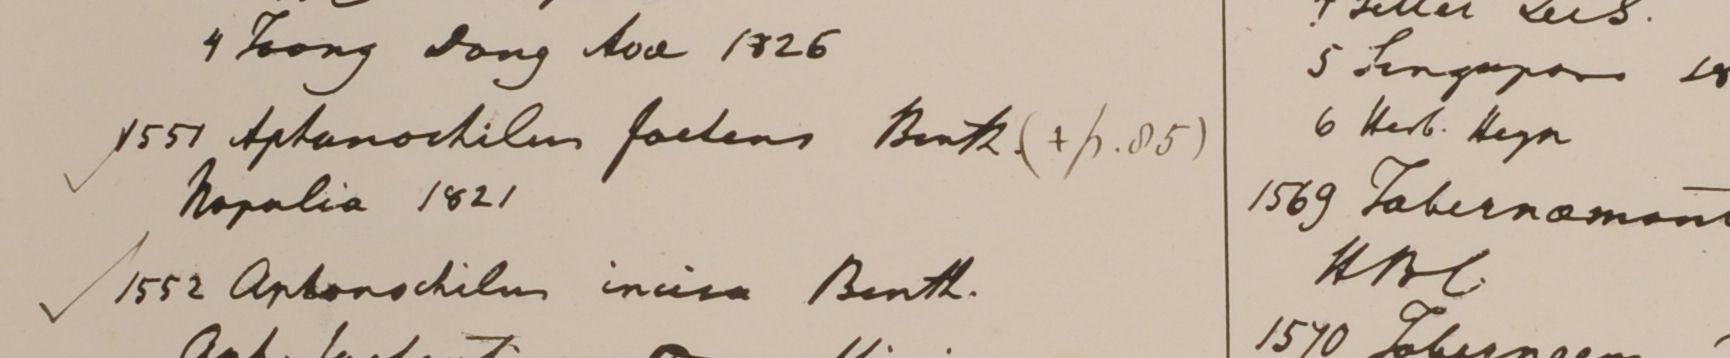 4 Toong Dong Ava 1826
1551 Aphanochilus foetens Benth. (+ p. 85)
Napalia 1821
1552 Aphanochilus incisa Benth.
5 Singapore
6 Herb. Heyn
1569 Tabernæmont
HBC.
1570 Tabernaem